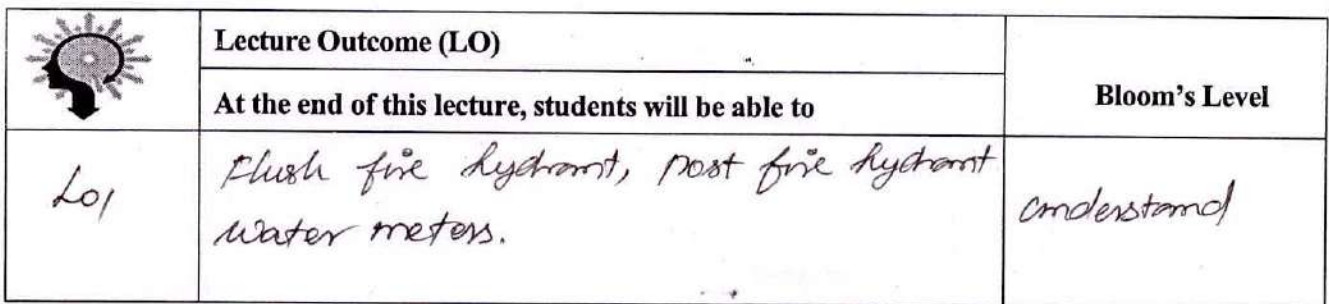 Lecture Outcome (LO)
At the end of this lecture, students will be able to
Bloom's Level
LO1
Flush fire hydrant, post fire hydrant
water meters.
understand